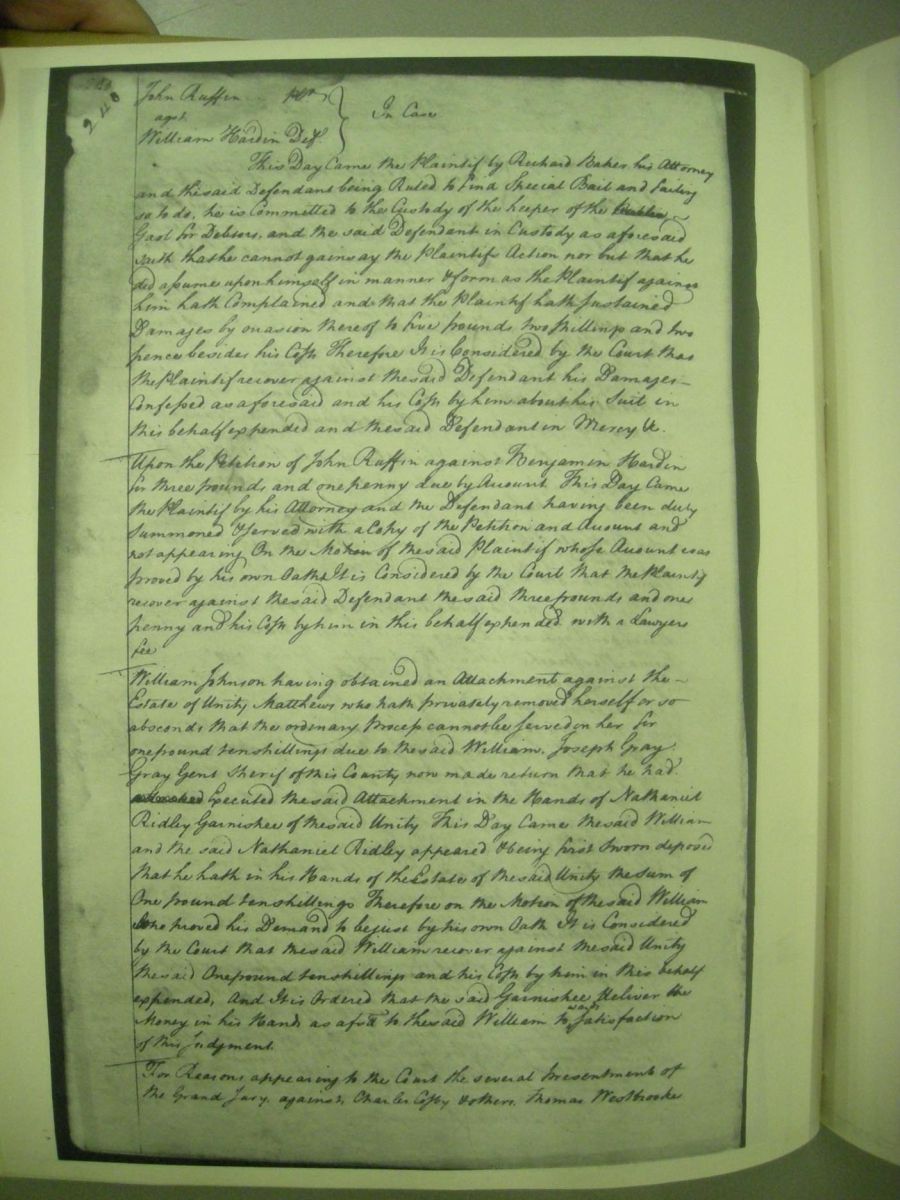 240
John Ruffin Plt
agst
William Hardin Deft. } In Case
This Day Came the Plaintif by Richard Baker his Attorney
and the said Defendant being Ruled to find Special Bail and failing
so to do, he is Committed to the Custody of the keeper of the
Gaol for Debtors, and the said Defendant in Custody as aforesaid
saith that he cannot gainsay the Plaintifs Action nor but that he
did assume upon himself in manner & form as the Plaintif against
him hath Complained and that the Plaintif hath Sustained
Damages by occasion thereof to five pounds two shillings and two
pence besides his Costs Therefore It is Considered by the Court that
the Plaintif recover against the said Defendant his Damages
Confessed as aforesaid and his Costs by him about his Suit in
this behalf expended and the said Defendant in Mercy &c.
Upon the Petition of John Ruffin against Benjamin Hardin
for three pounds and one penny due by Account This Day Came
the Plaintif by his Attorney and the Defendant having been duly
Summoned & served with a Copy of the Petition and Account and
not appearing On the Motion of the said Plaintif whose Account was
proved by his own Oath It is Considered by the Court that the Plaintif
recover against the said Defendant the said three pounds and one
penny and his Costs by him in this behalf expended with a Lawyers
fee
William Johnson having obtained an Attachment against the
Estate of Unity Matthews who hath privately removed herself or so
absconds that the ordinary Process cannot be served on her for
one pound ten shillings due to the said William. Joseph Gray
Gray Gent Sherif of this County now made return that he had
Executed the said Attachment in the Hands of Nathaniel
Ridley Garnishee of the said Unity This Day Came the said William
and the said Nathaniel Ridley appeared & being first Sworn deposed
that he hath in his Hands of the Estate of the said Unity the sum of
One pound ten shillings Therefore on the Motion of the said William
who proved his Demand to be just by his own Oath It is Considered
by the Court that the said William recover against the said Unity
the said One pound ten shillings and his Costs by him in this behalf
expended, And It is Ordered that the said Garnishee deliver the
Money in his Hands as afsd. to the said William towds Satisfaction
of this Judgment.
For Reasons appearing to the Court the several Presentments of
the Grand Jury against, Charles Cosby & others, Thomas Westbrooke